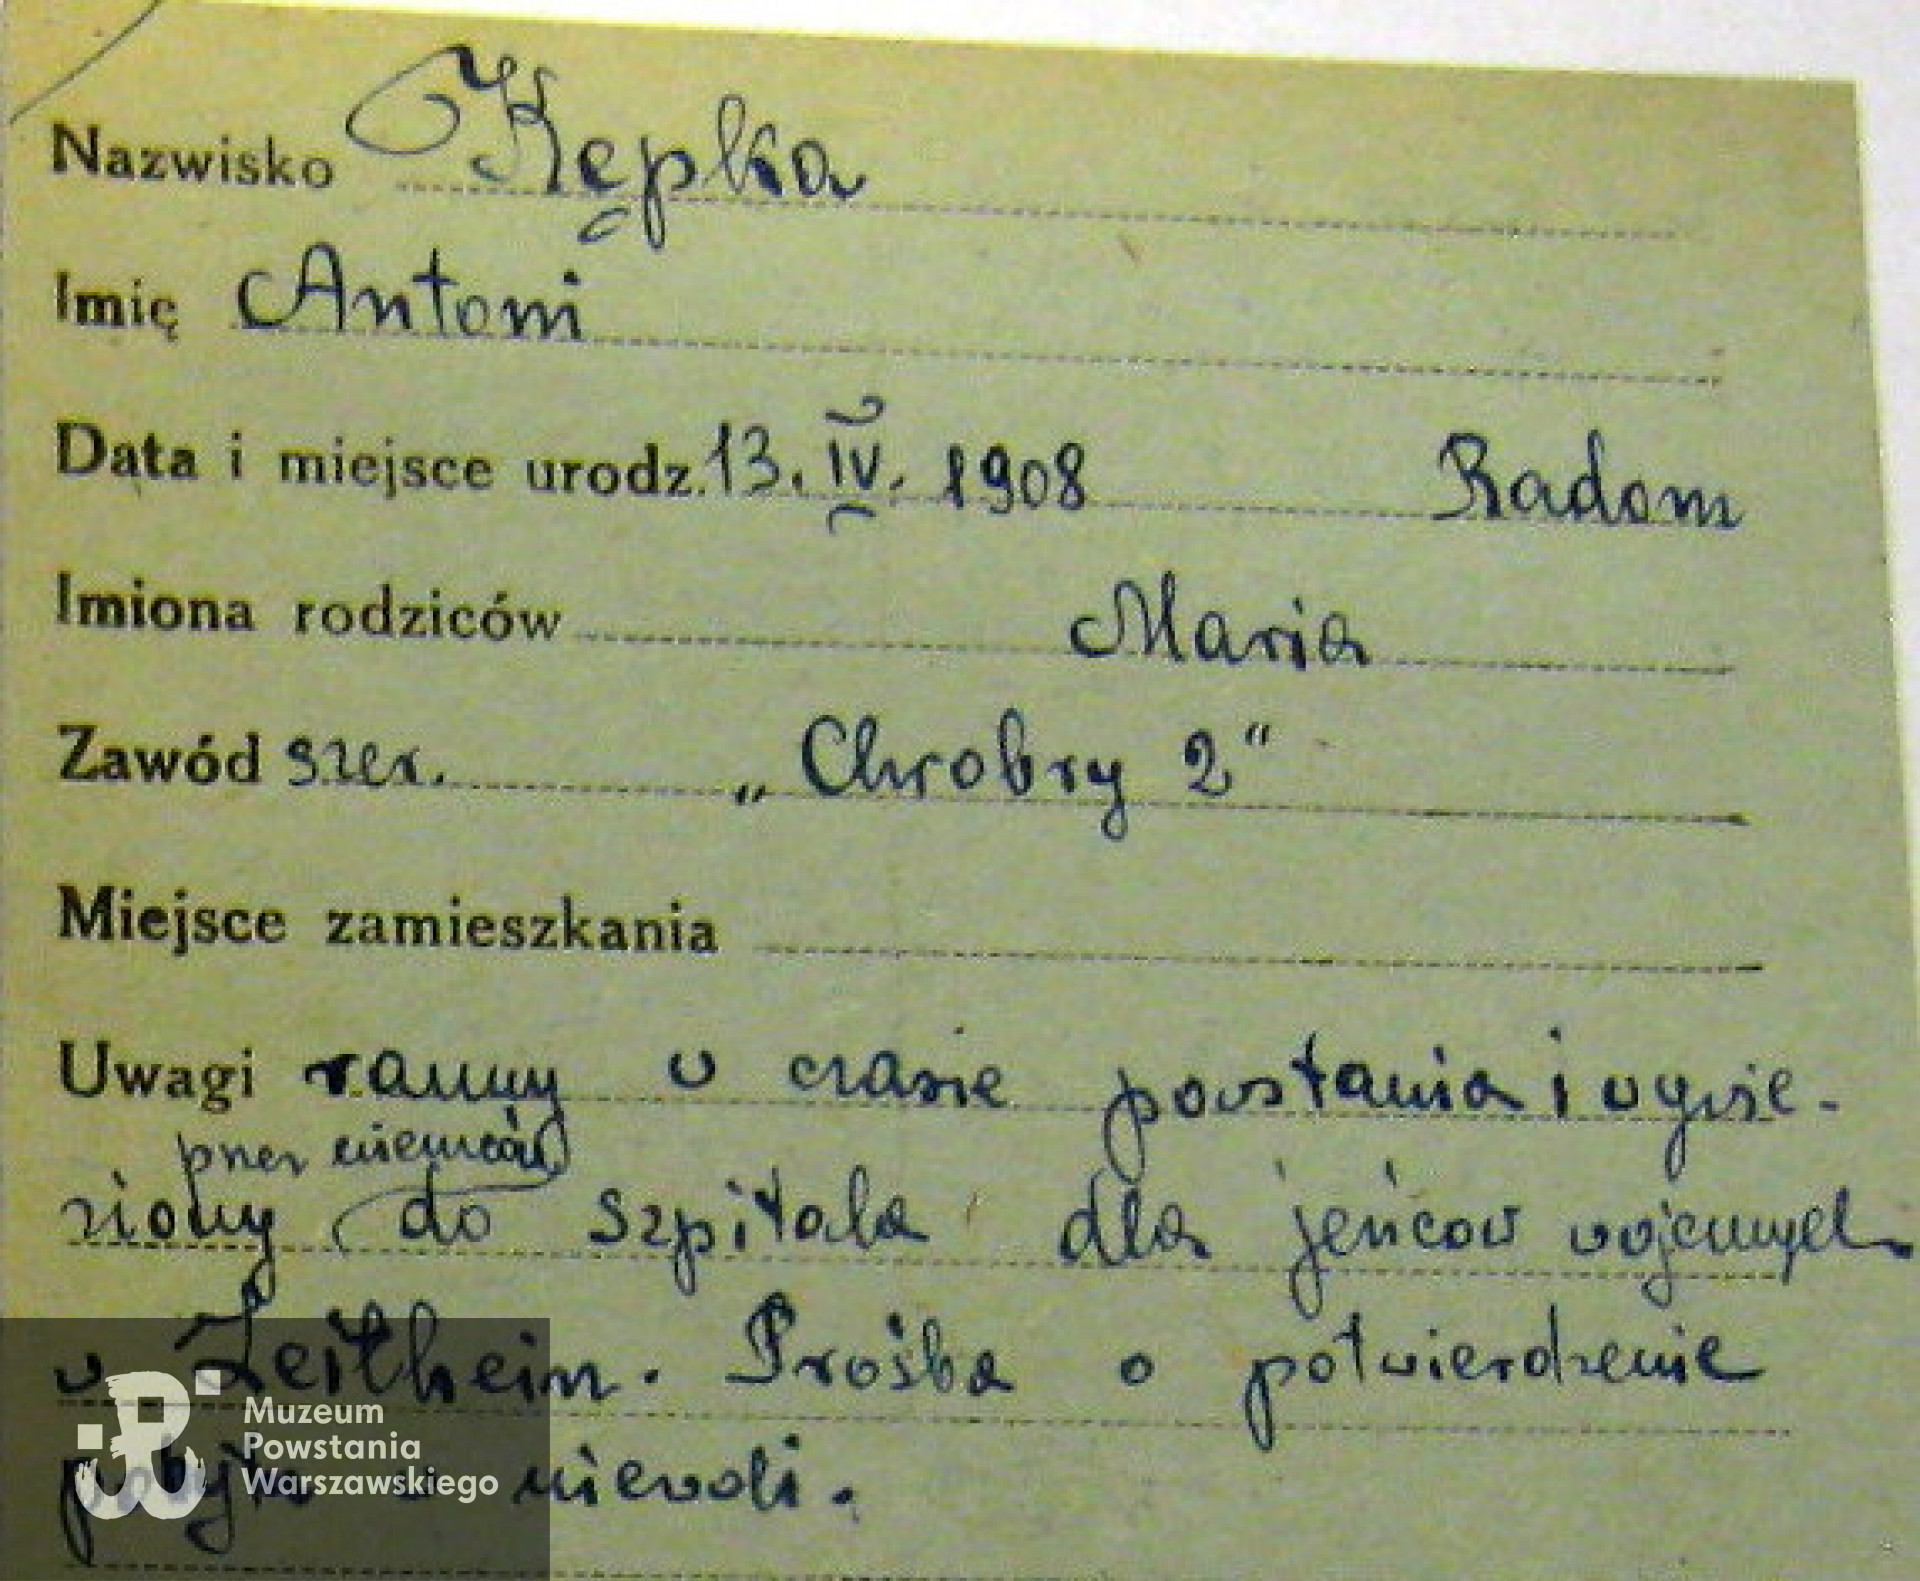 Nazwisko Kępka
Imię Antoni
Data i miejsce urodz. 13. IV. 1908 Radom
Imiona rodziców Maria
Zawód szer. „Chrobry 2“
Miejsce zamieszkania
Uwagi ranny w czasie powstania i wywie-
przez niemców
ziony do szpitala dla jeńców wojennych
w Zeithein. Prośba o potwierdzenie
pobytu w niewoli.
Muzeum
Powstania
Warszawskiego